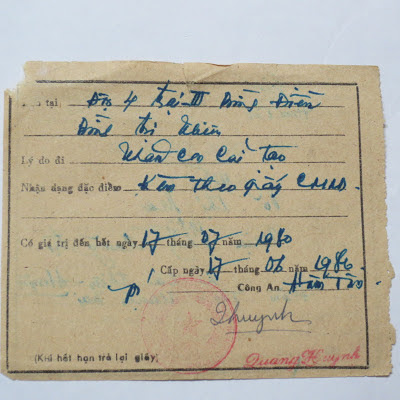 tại Đội 4 trại III Đồng Điền
Đồng thị
Lý do đi thăm con cải tạo
Nhận dạng đặc điểm kèm theo giấy CMND.
Có giá trị đến hết ngày 17 tháng 07 năm 1980
Cấp ngày 17 tháng 06 năm 1980.
Công An Hàm Tân
Thuynh
(Khi hết hạn trả lại giấy)
Quang Huỳnh